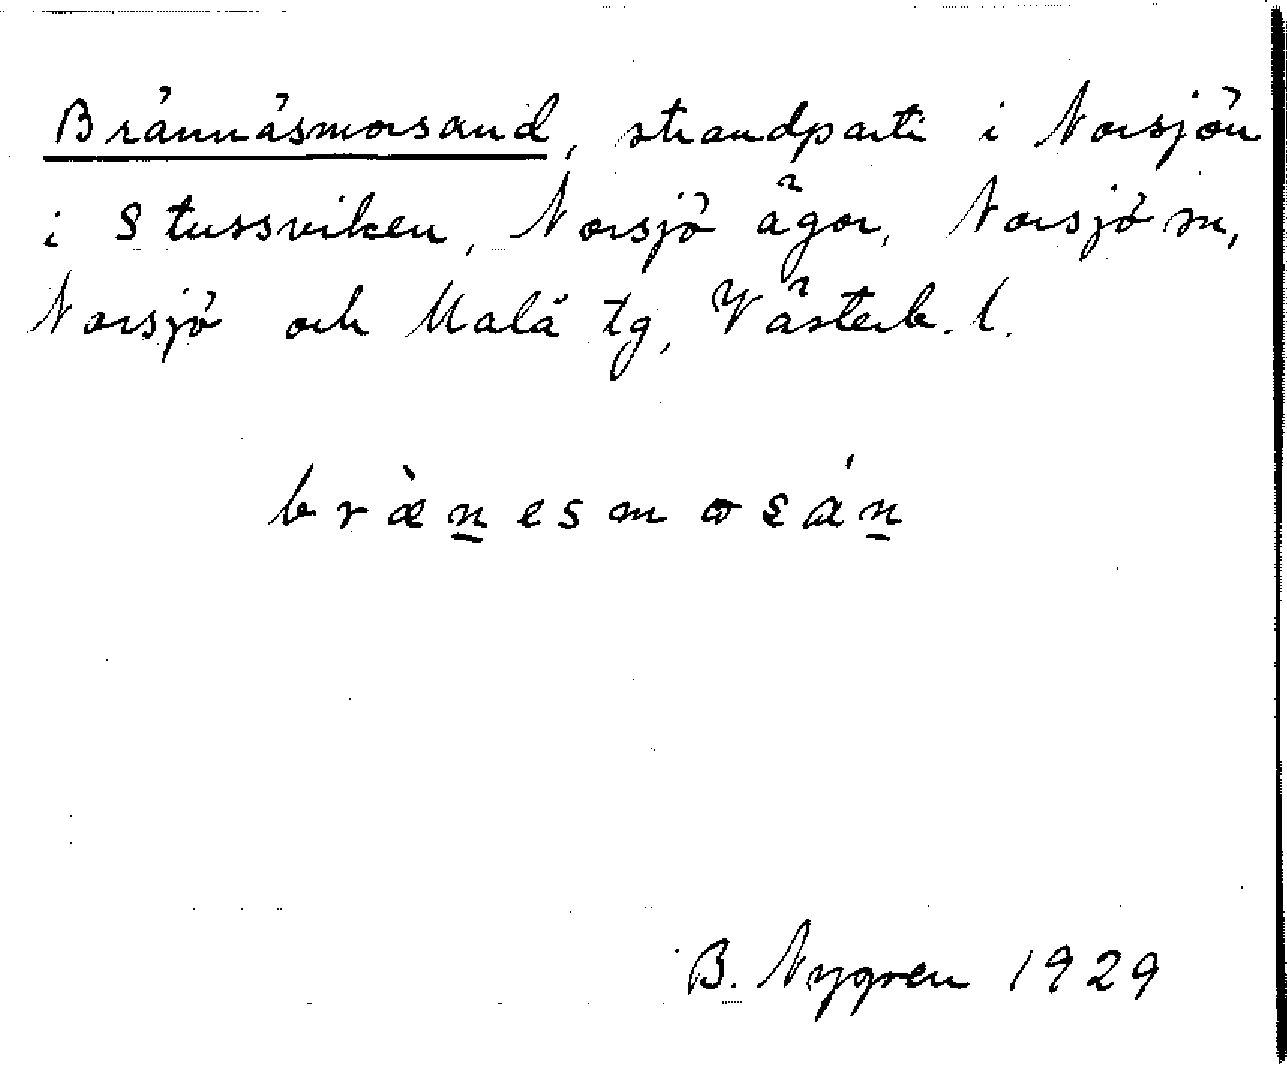 Brännäsmorsand, strandparti i Norsjön
i Stussviken, Norsjö ägor, Norsjö sn,
Norsjö och Malå tg, Västerb. l.
bræ̀n̲esmosán̲
B. Nygren 1929